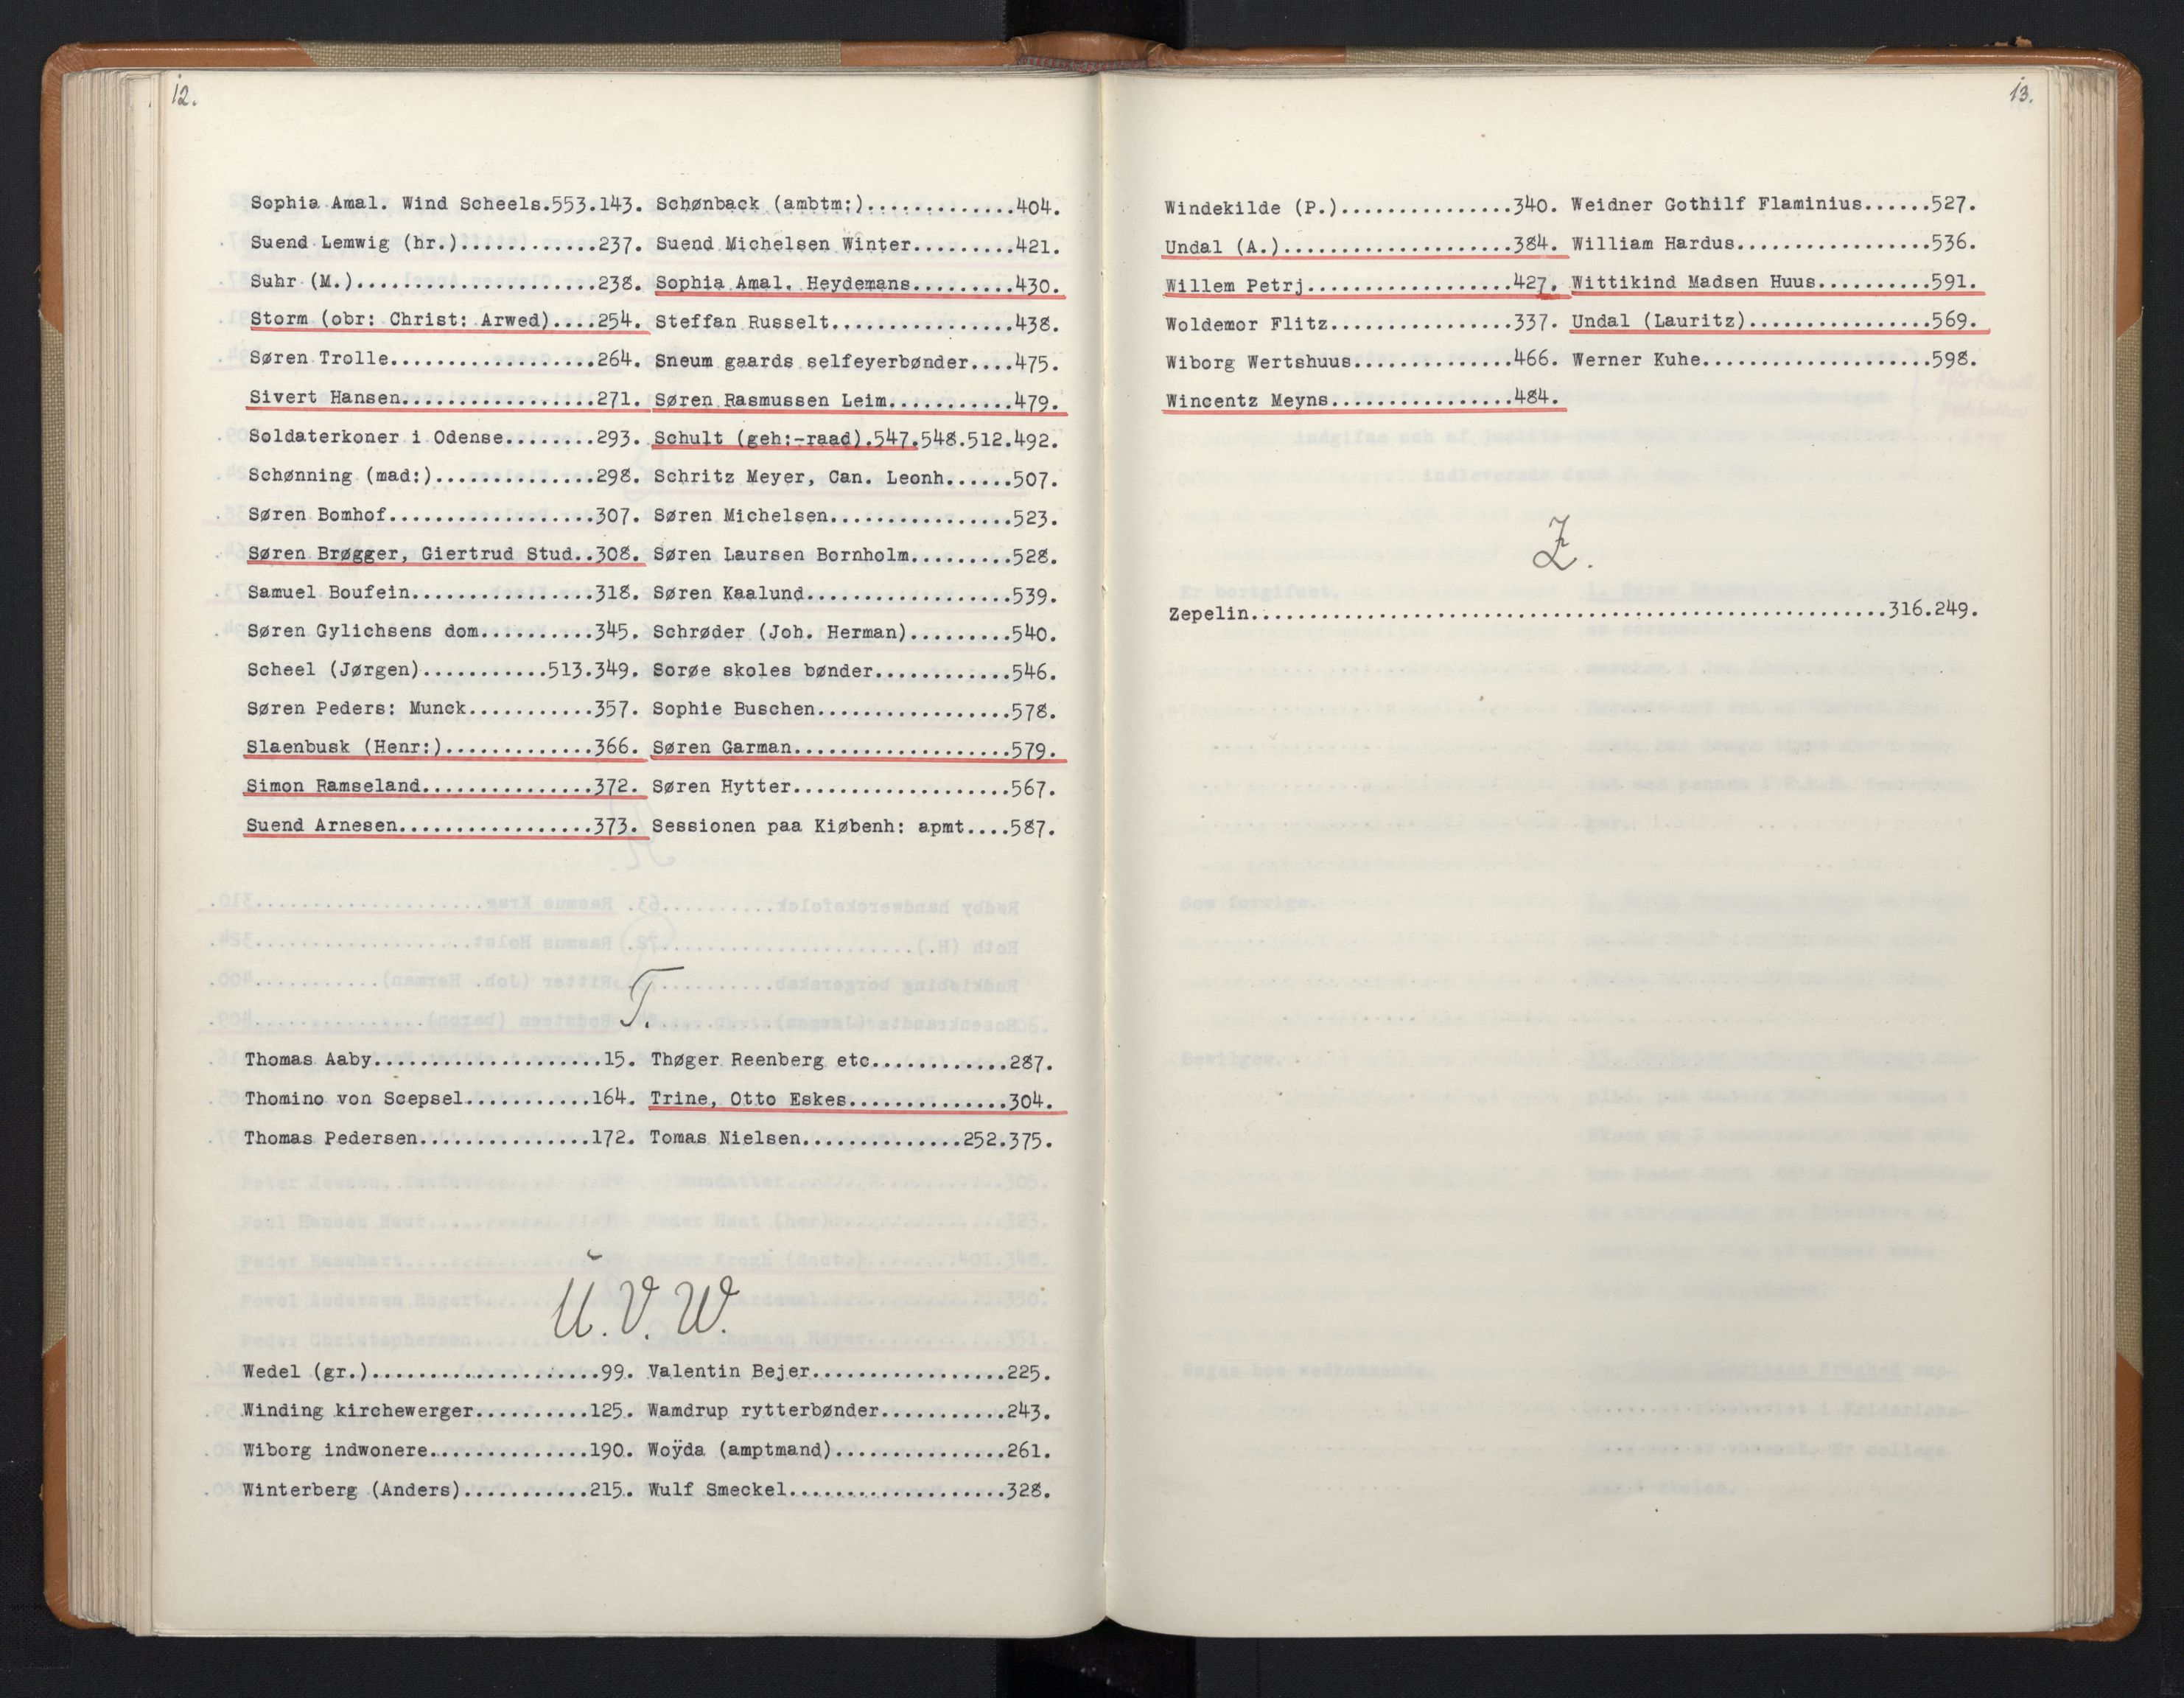 12.
Sophia Amal. Wind Scheels.553.143.
Suend Lemwig (hr.)............237.
Suhr (M.).....................238.
Storm (obr: Christ: Arwed)....254.
Søren Trolle..................264.
Sivert Hansen.................271.
Soldaterkoner i Odense........293.
Schønning (mad:)..............298.
Søren Bomhof..................307.
Søren Brøgger, Giertrud Stud..308.
Samuel Boufein................318.
Søren Gylichsens dom..........345.
Scheel (Jørgen)...........513.349.
Søren Peders: Munck...........357.
Slaenbusk (Henr:).............366.
Simon Ramseland...............372.
Suend Arnesen.................373.
Schønback (ambtm:).............404.
Suend Michelsen Winter.........421.
Sophia Amal. Heydemans.........430.
Steffan Russelt................438.
Sneum gaards selfeyerbønder....475.
Søren Rasmussen Leim...........479.
Schult (geh:-raad).547.548.512.492.
Schritz Meyer, Can. Leonh......507.
Søren Michelsen................523.
Søren Laursen Bornholm.........528.
Søren Kaalund..................539.
Schrøder (Joh. Herman).........540.
Sorøe skoles bønder............546.
Sophie Buschen.................578.
Søren Garman...................579.
Søren Hytter...................567.
Sessionen paa Kiøbenh: apmt....587.
T.
Thomas Aaby....................15.
Thomino von Scepsel...........164.
Thomas Pedersen...............172.
Thøger Reenberg etc............287.
Trine, Otto Eskes..............304.
Tomas Nielsen..............252.375.
U.V.W.
Wedel (gr.)....................99.
Winding kirchewerger..........125.
Wiborg indwonere..............190.
Winterberg (Anders)...........215.
Valentin Bejer.................225.
Wamdrup rytterbønder...........243.
Woÿda (amptmand)...............261.
Wulf Smeckel...................328.
13.
Windekilde (P.)...............340.
Undal (A.)....................384.
Willem Petrj..................427.
Woldemor Flitz................337.
Wiborg Wertshuus..............466.
Wincentz Meyns................484.
Weidner Gothilf Flaminius......527.
William Hardus.................536.
Wittikind Madsen Huus..........591.
Undal (Lauritz)................569.
Werner Kuhe....................598.
Z.
Zepelin......................................................316.249.